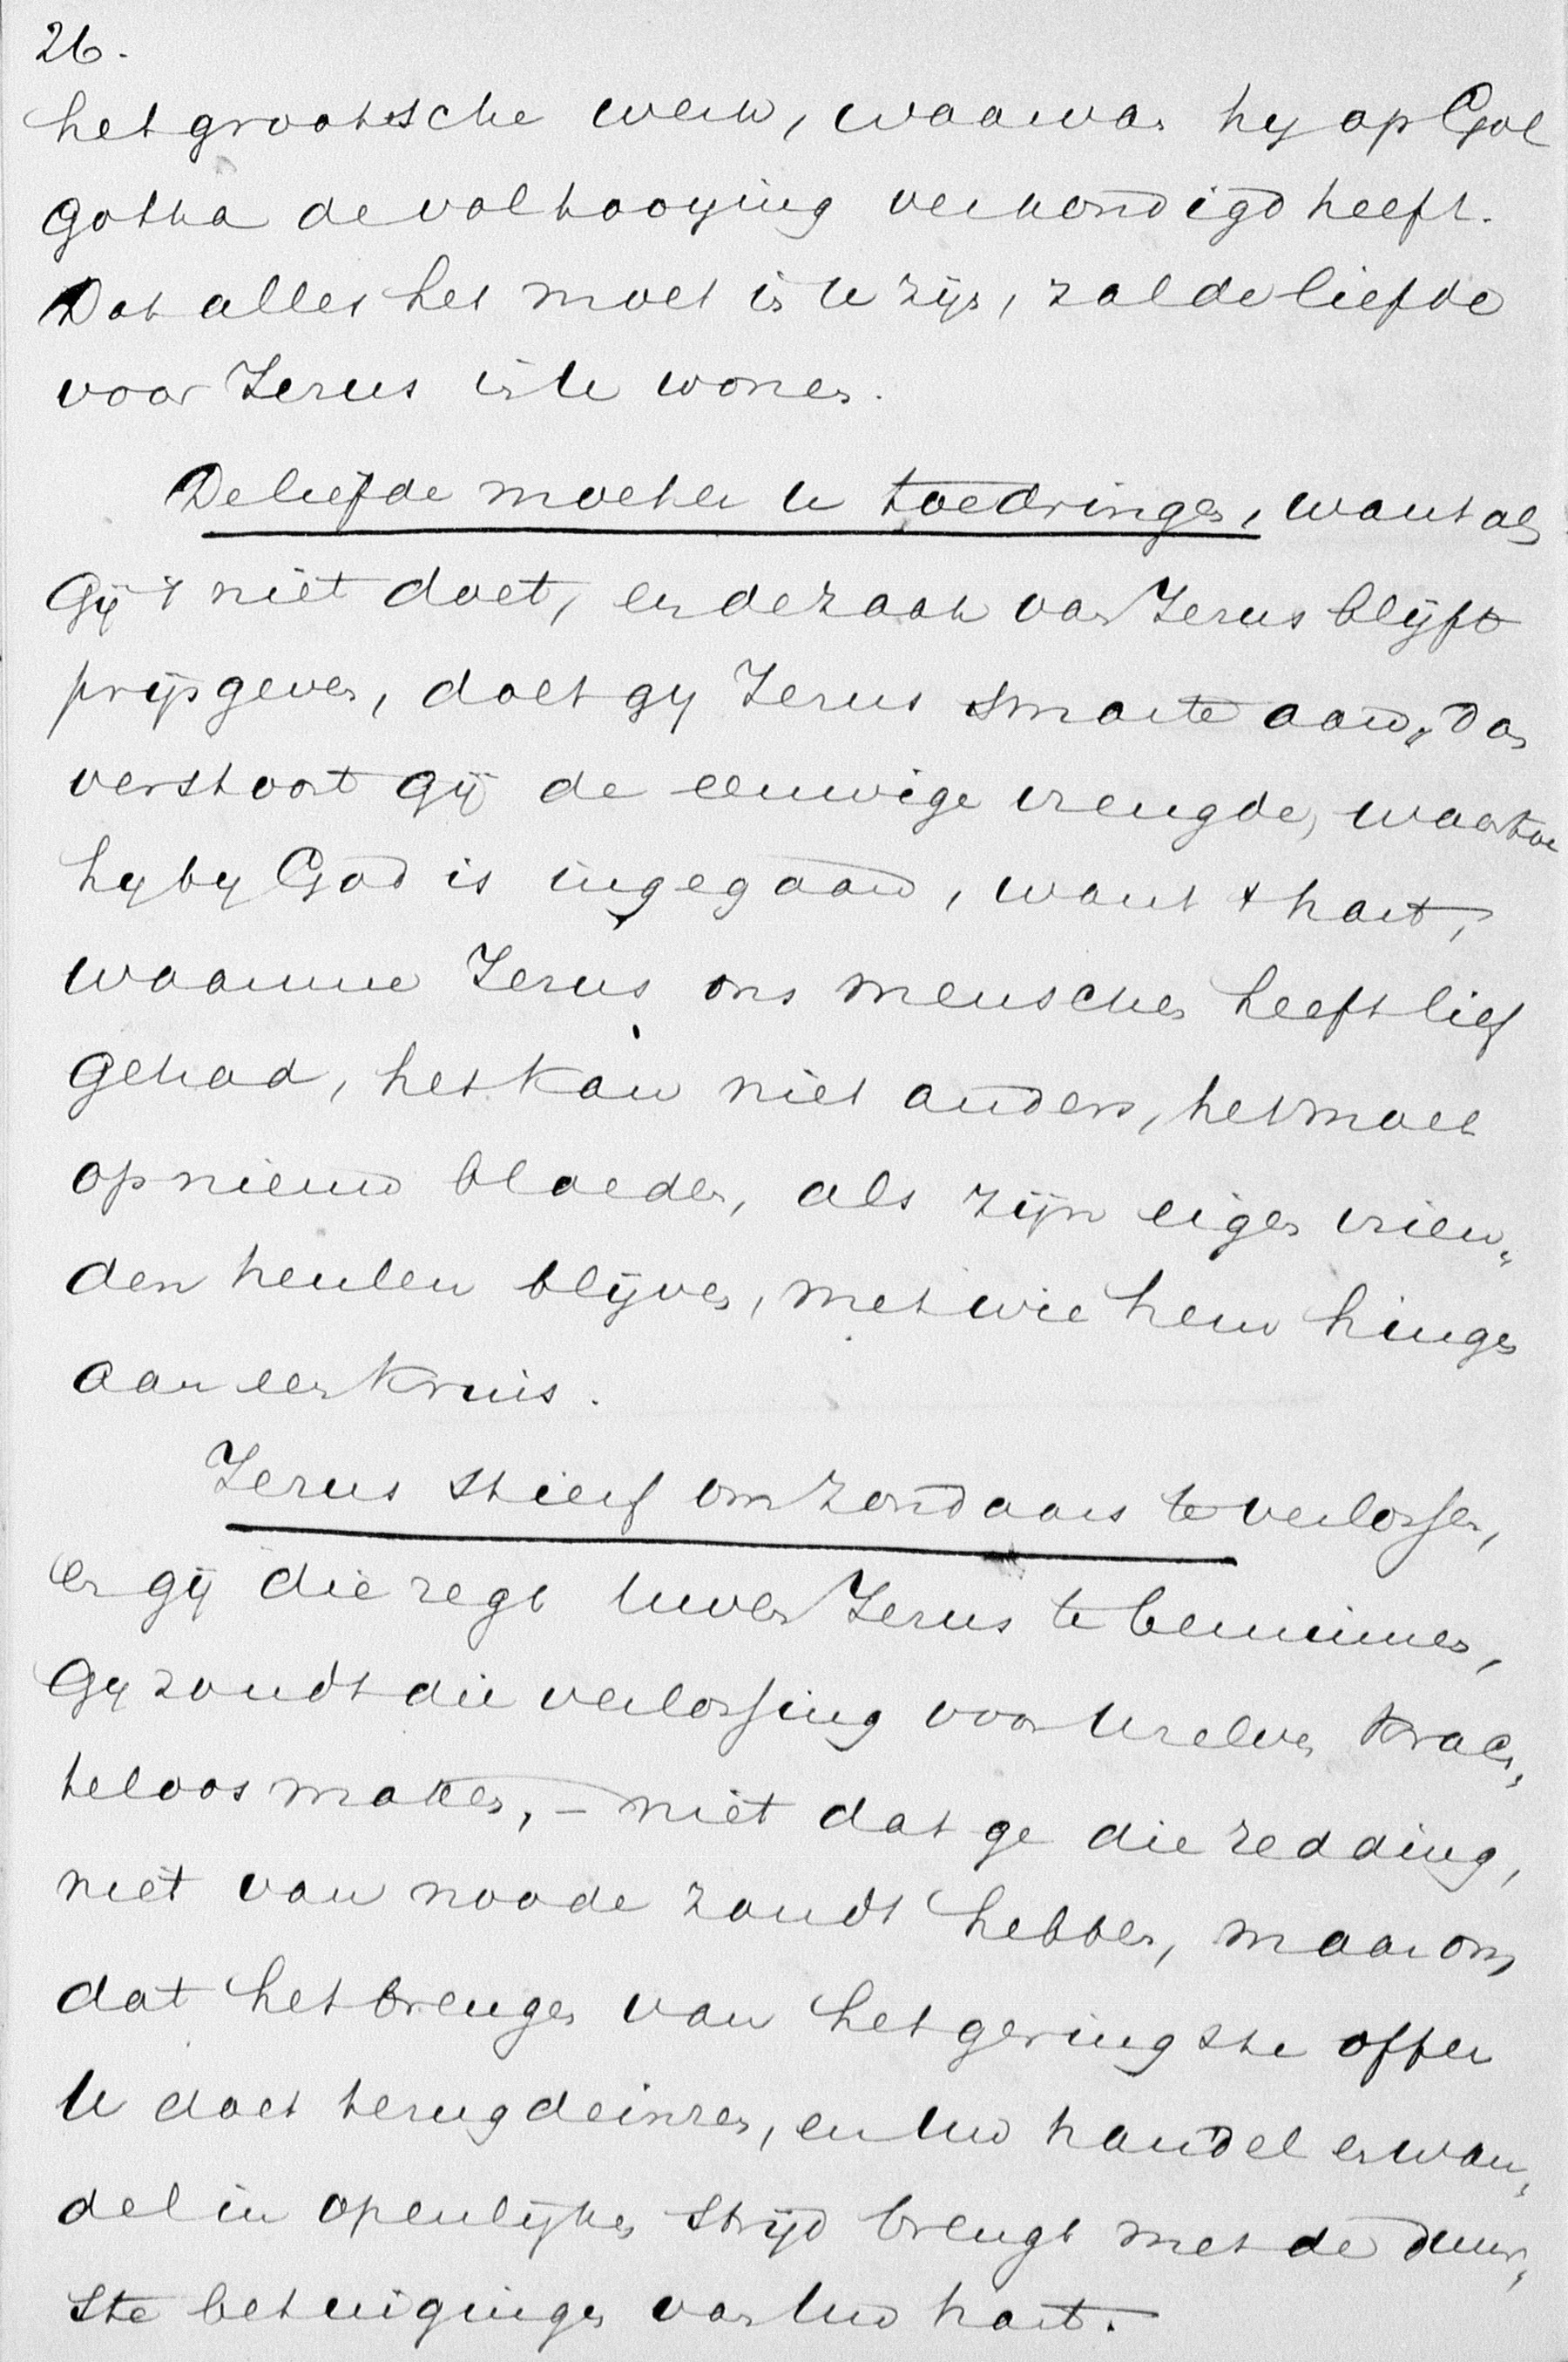 26.
het grootsche werk, waarvan hy op Gol
gotha de voltooying verkondigd heeft.
Dat alles het moet in U zijn, zal de liefde
voor Jezus in U wonen.
De liefde moet er U toe dringen, want als
Gij 't niet doet, en de zaak van Jezus blijft
prijsgeven, doet gy Jezus smarte aan, dan
verstoort gij de eeuwige vreugde, waartoe
hy by God is ingegaan, want 't hart,
waarmee Jezus ons menschen heeft lief
gehad, het kan niet anders, het moet
op nieuw bloeden, als zijn eigen vrien„
den heulen blijven, met wie hem hingen
aan een kruis.
Jezus stierf om zondaars te verlossen,
en gij die zegt Uwen Jezus te beminnen,
Gy zoudt die verlossing voor Uzelven krach„
teloos maken, – niet dat ge die redding,
niet van noode zoudt hebben, maar om
dat het brengen van het geringste offer
U doet terugdeinzen, en Uw handel en wan„
del in openlijken strijd brengt met de duur„
ste betuigingen van Uw hart.